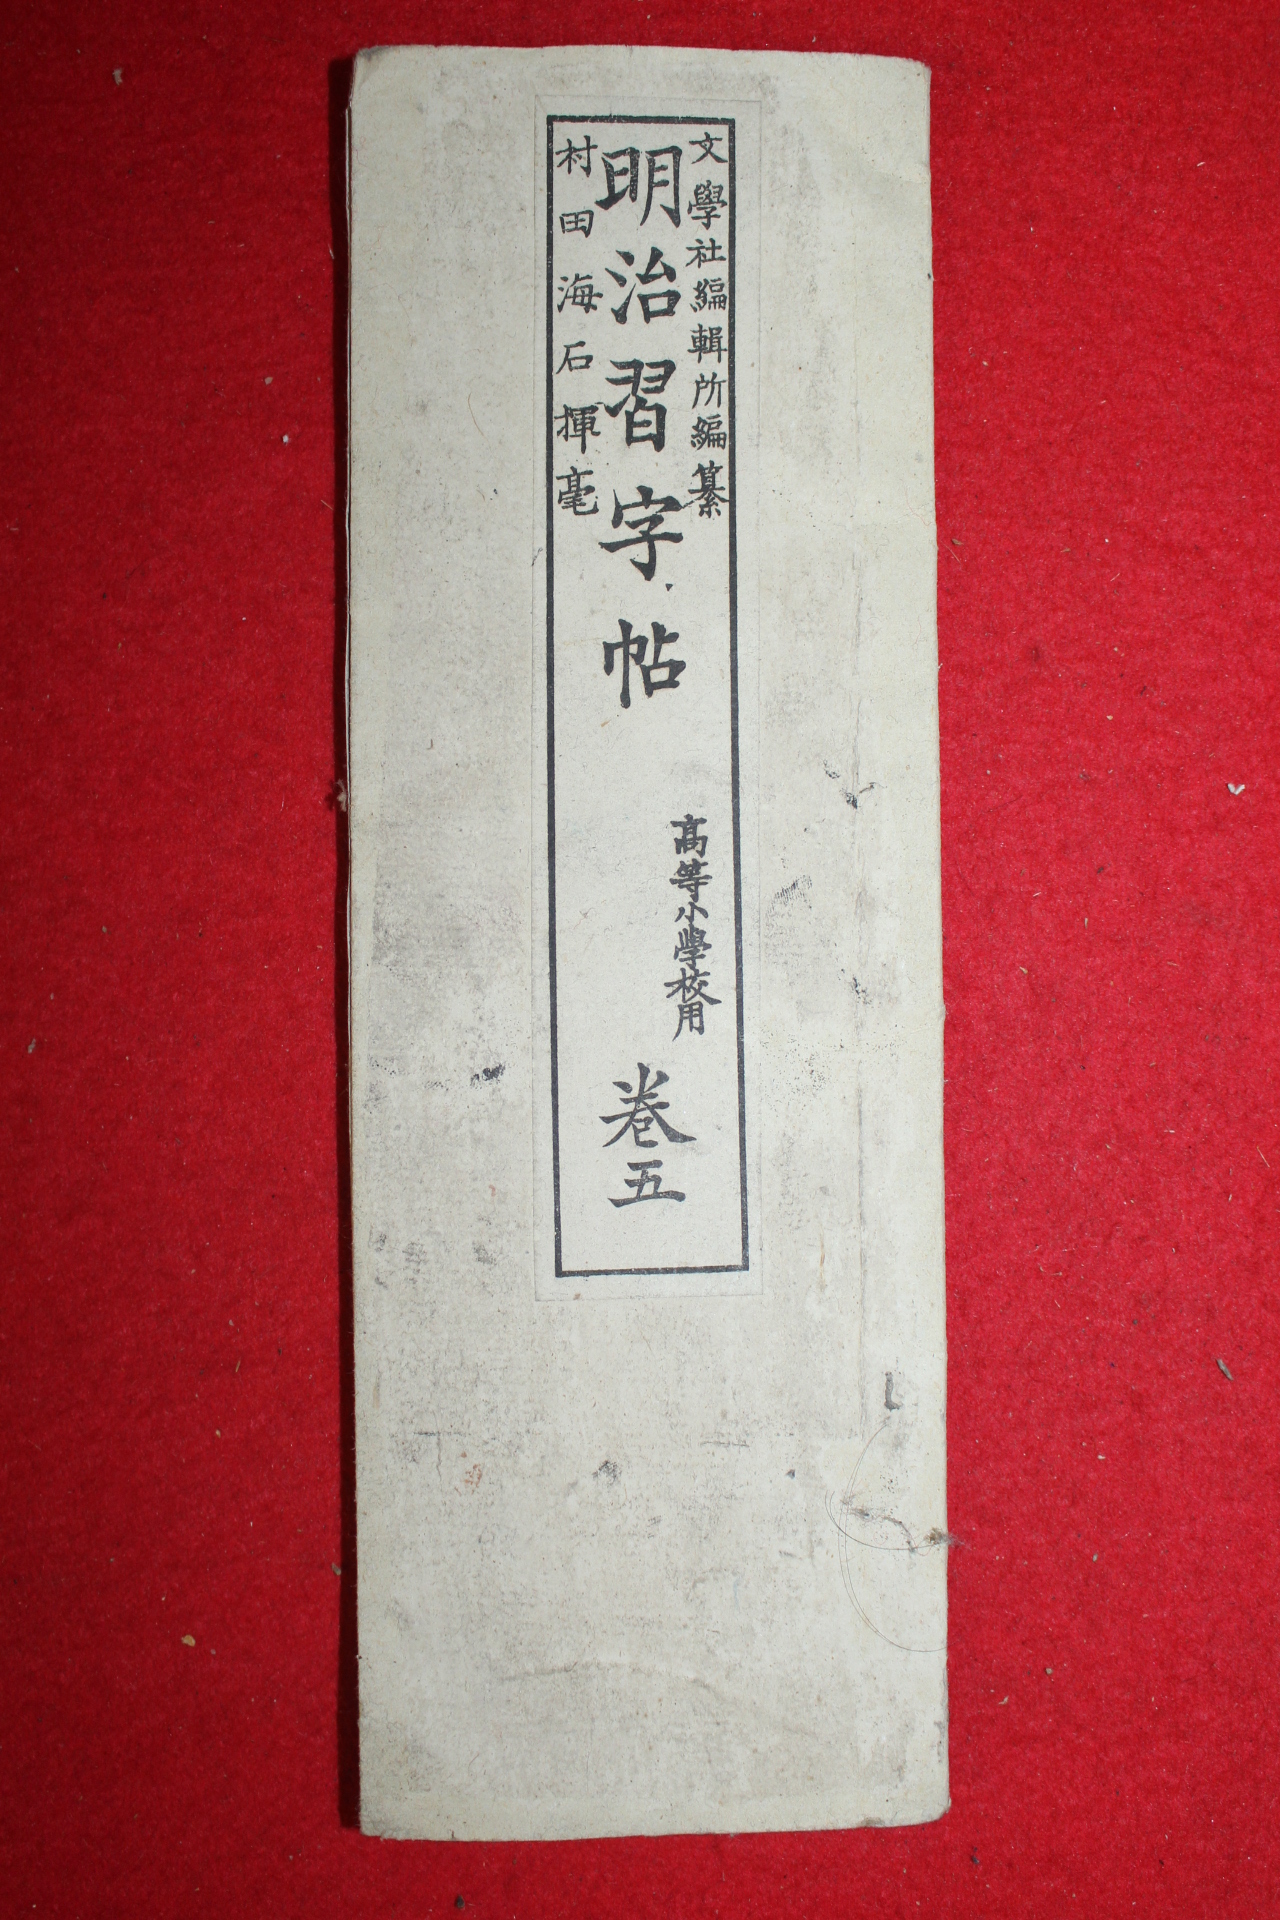 文學社編輯所編纂
明治習字帖
高等小學校用
卷五
村田海石揮毫